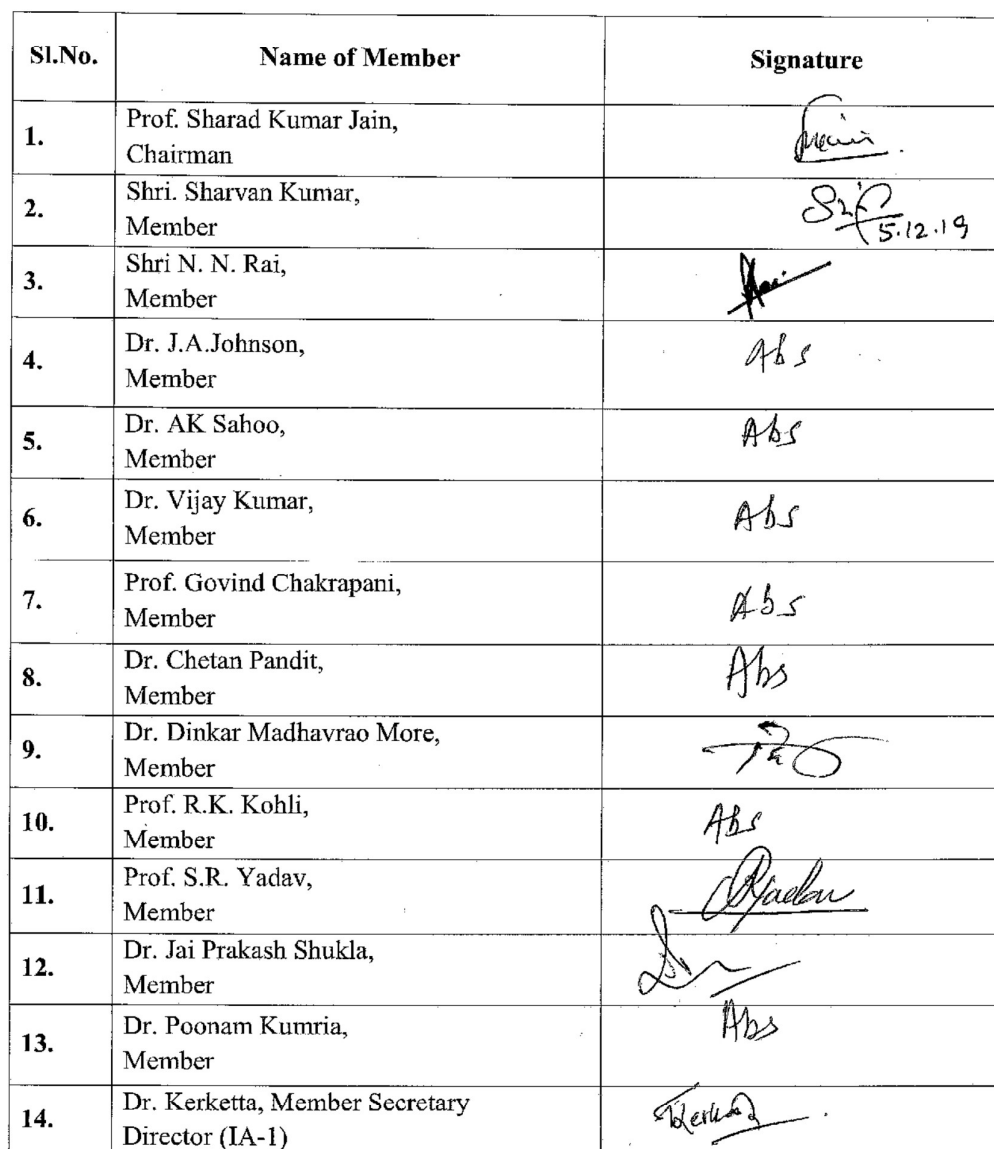 Sl.No. Name of Member Signature
1. Prof. Sharad Kumar Jain,
Chairman
2. Shri. Sharvan Kumar,
Member
5.12.19
3. Shri N. N. Rai,
Member
4. Dr. J.A.Johnson,
Member
Abs
5. Dr. AK Sahoo,
Member
Abs
6. Dr. Vijay Kumar,
Member
Abs
7. Prof. Govind Chakrapani,
Member
Abs
8. Dr. Chetan Pandit,
Member
Abs
9. Dr. Dinkar Madhavrao More,
Member
10. Prof. R.K. Kohli,
Member
Abs
11. Prof. S.R. Yadav,
Member
12. Dr. Jai Prakash Shukla,
Member
13. Dr. Poonam Kumria,
Member
Abs
14. Dr. Kerketta, Member Secretary
Director (IA-1)